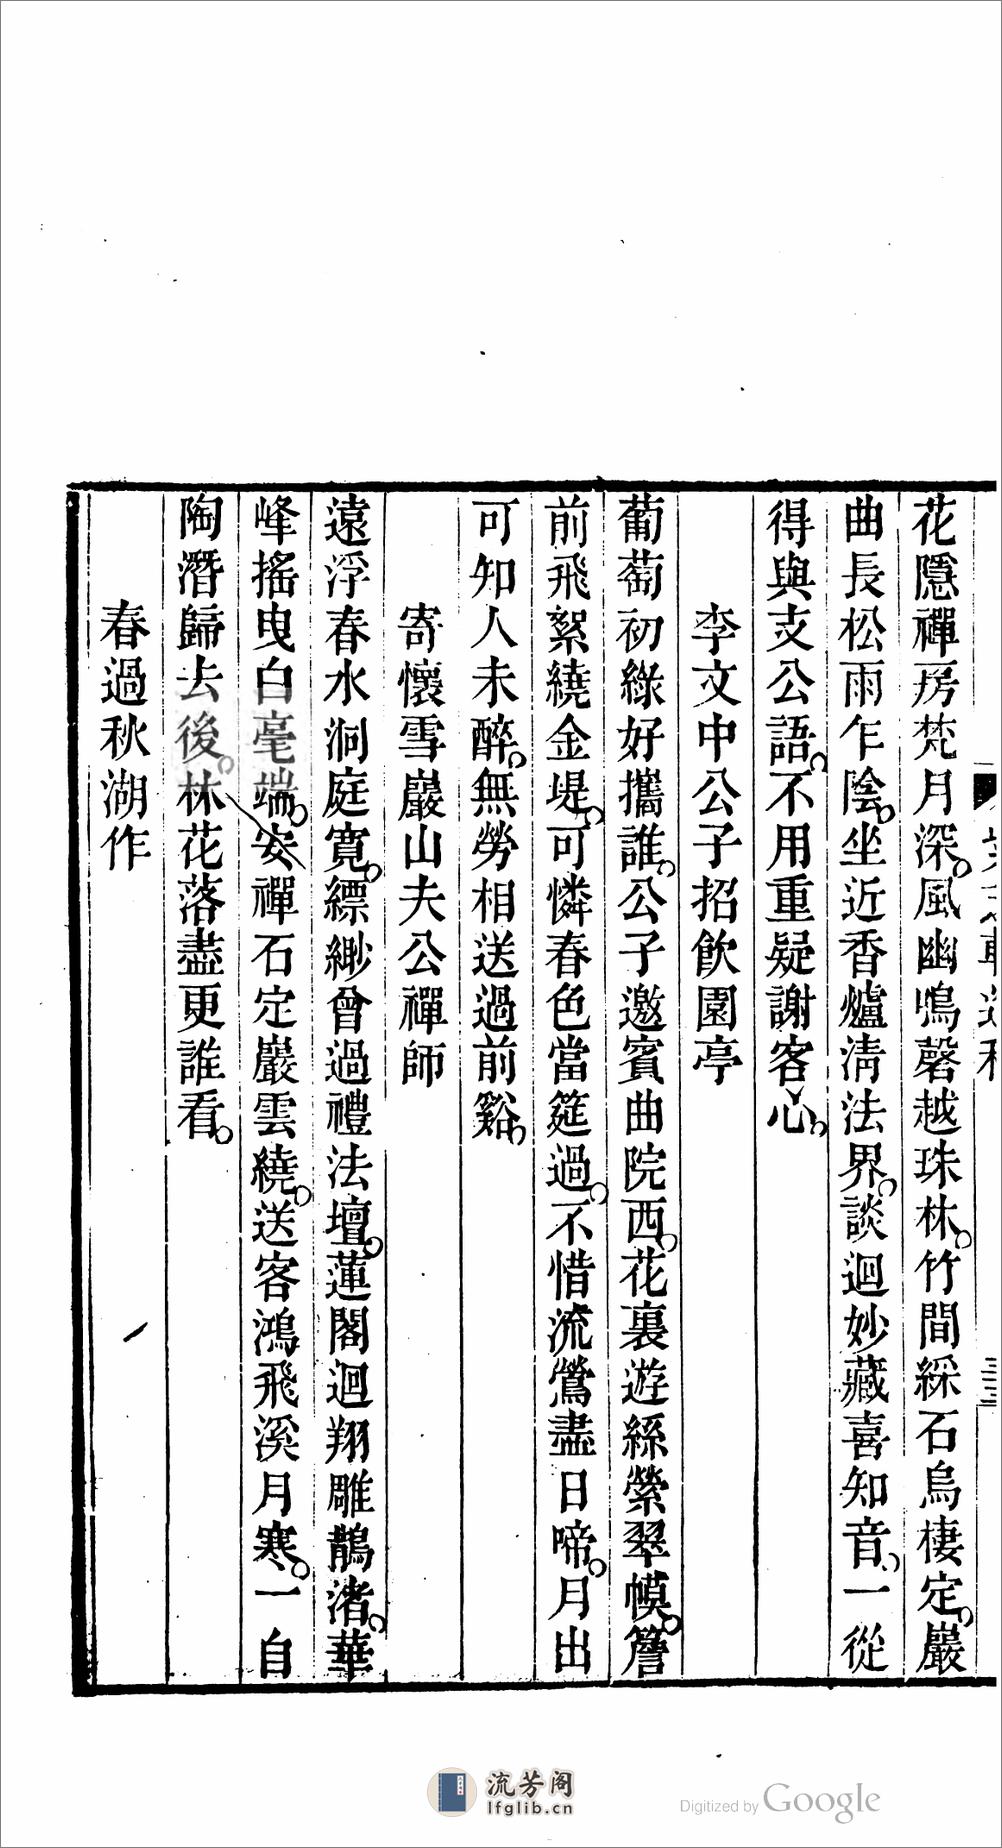 花隱禪房梵月深。風幽鳴磬越珠林。竹間綵石烏棲定。巖
曲長松雨乍陰。坐近香爐淸法界。談迴妙藏喜知音。一從
得與支公語。不用重疑謝客心。
李文中公子招飲園亭
葡萄初綠好攜誰。公子邀賓曲院西。花裏遊絲縈翠幙。簷
前飛絮繞金堤。可憐春色當筵過。不惜流鶯盡日啼。月出
可知人未醉。無勞相送過前谿。
寄懷雪巖山夫公禪師
遠浮春水洞庭寬。縹緲曾過禮法壇。蓮閣迴翔雕鵲渚。華
峰搖曳白毫端。安禪石定巖雲繞。送客鴻飛溪月寒。一自
陶潛歸去後。林花落盡更誰看。
春過秋湖作
流芳阁
lfglib.cn
Digitized by Google